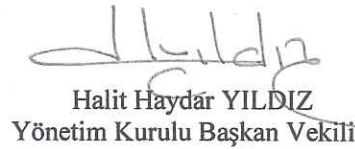 Halit Haydar YILDIZ
Yönetim Kurulu Başkan Vekili